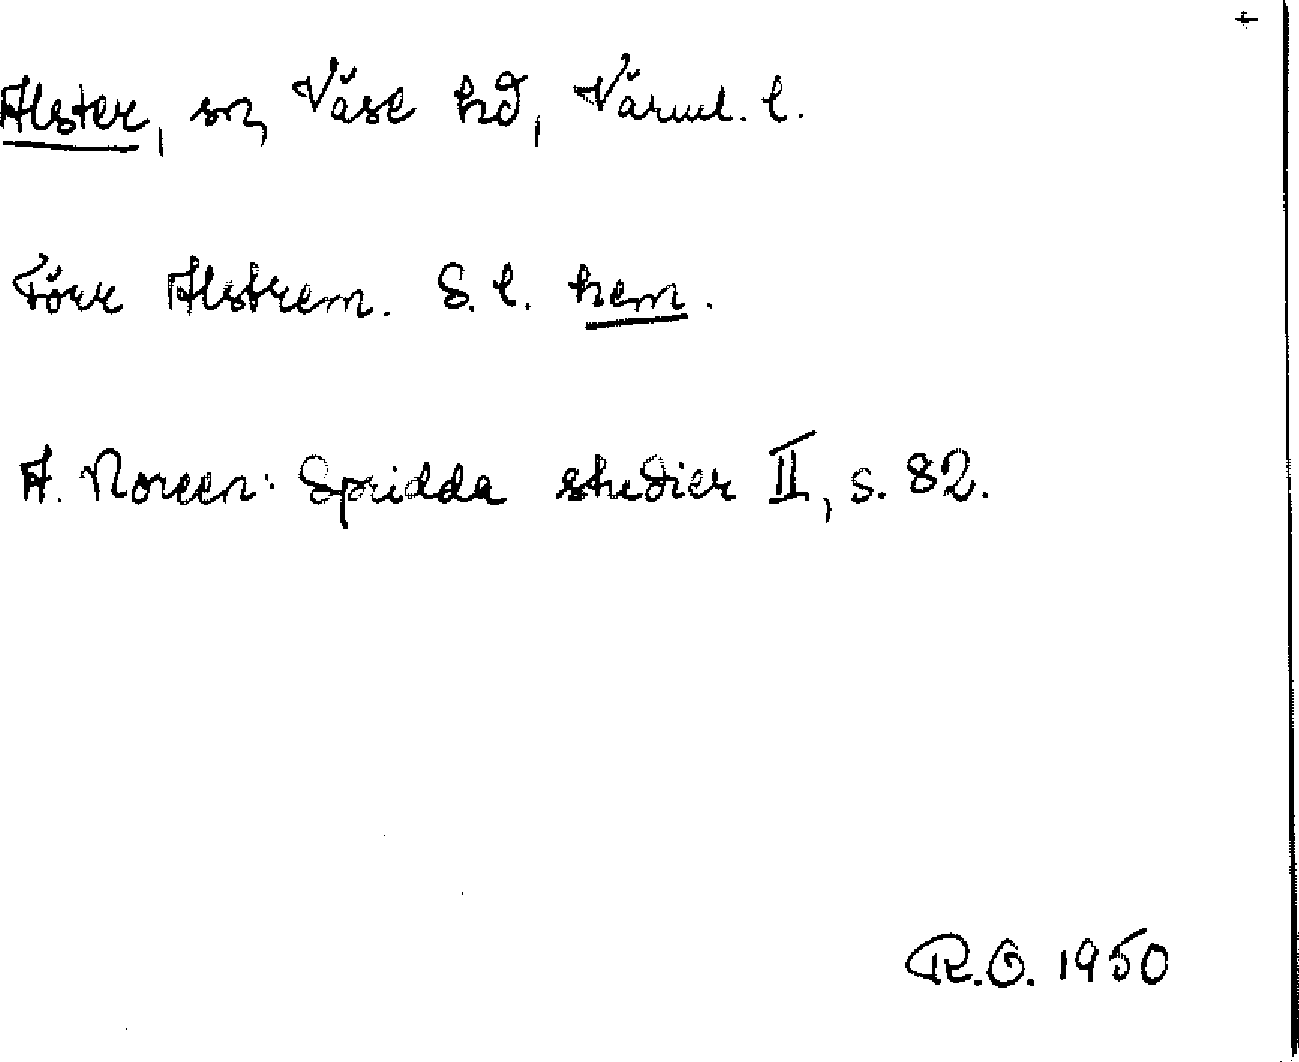 Alster, sn, Väse hd, Värml. l.
Förr Alstrem. S. l. hem.
A. Noreen: Spridda studier II, s. 82.
R.O. 1950